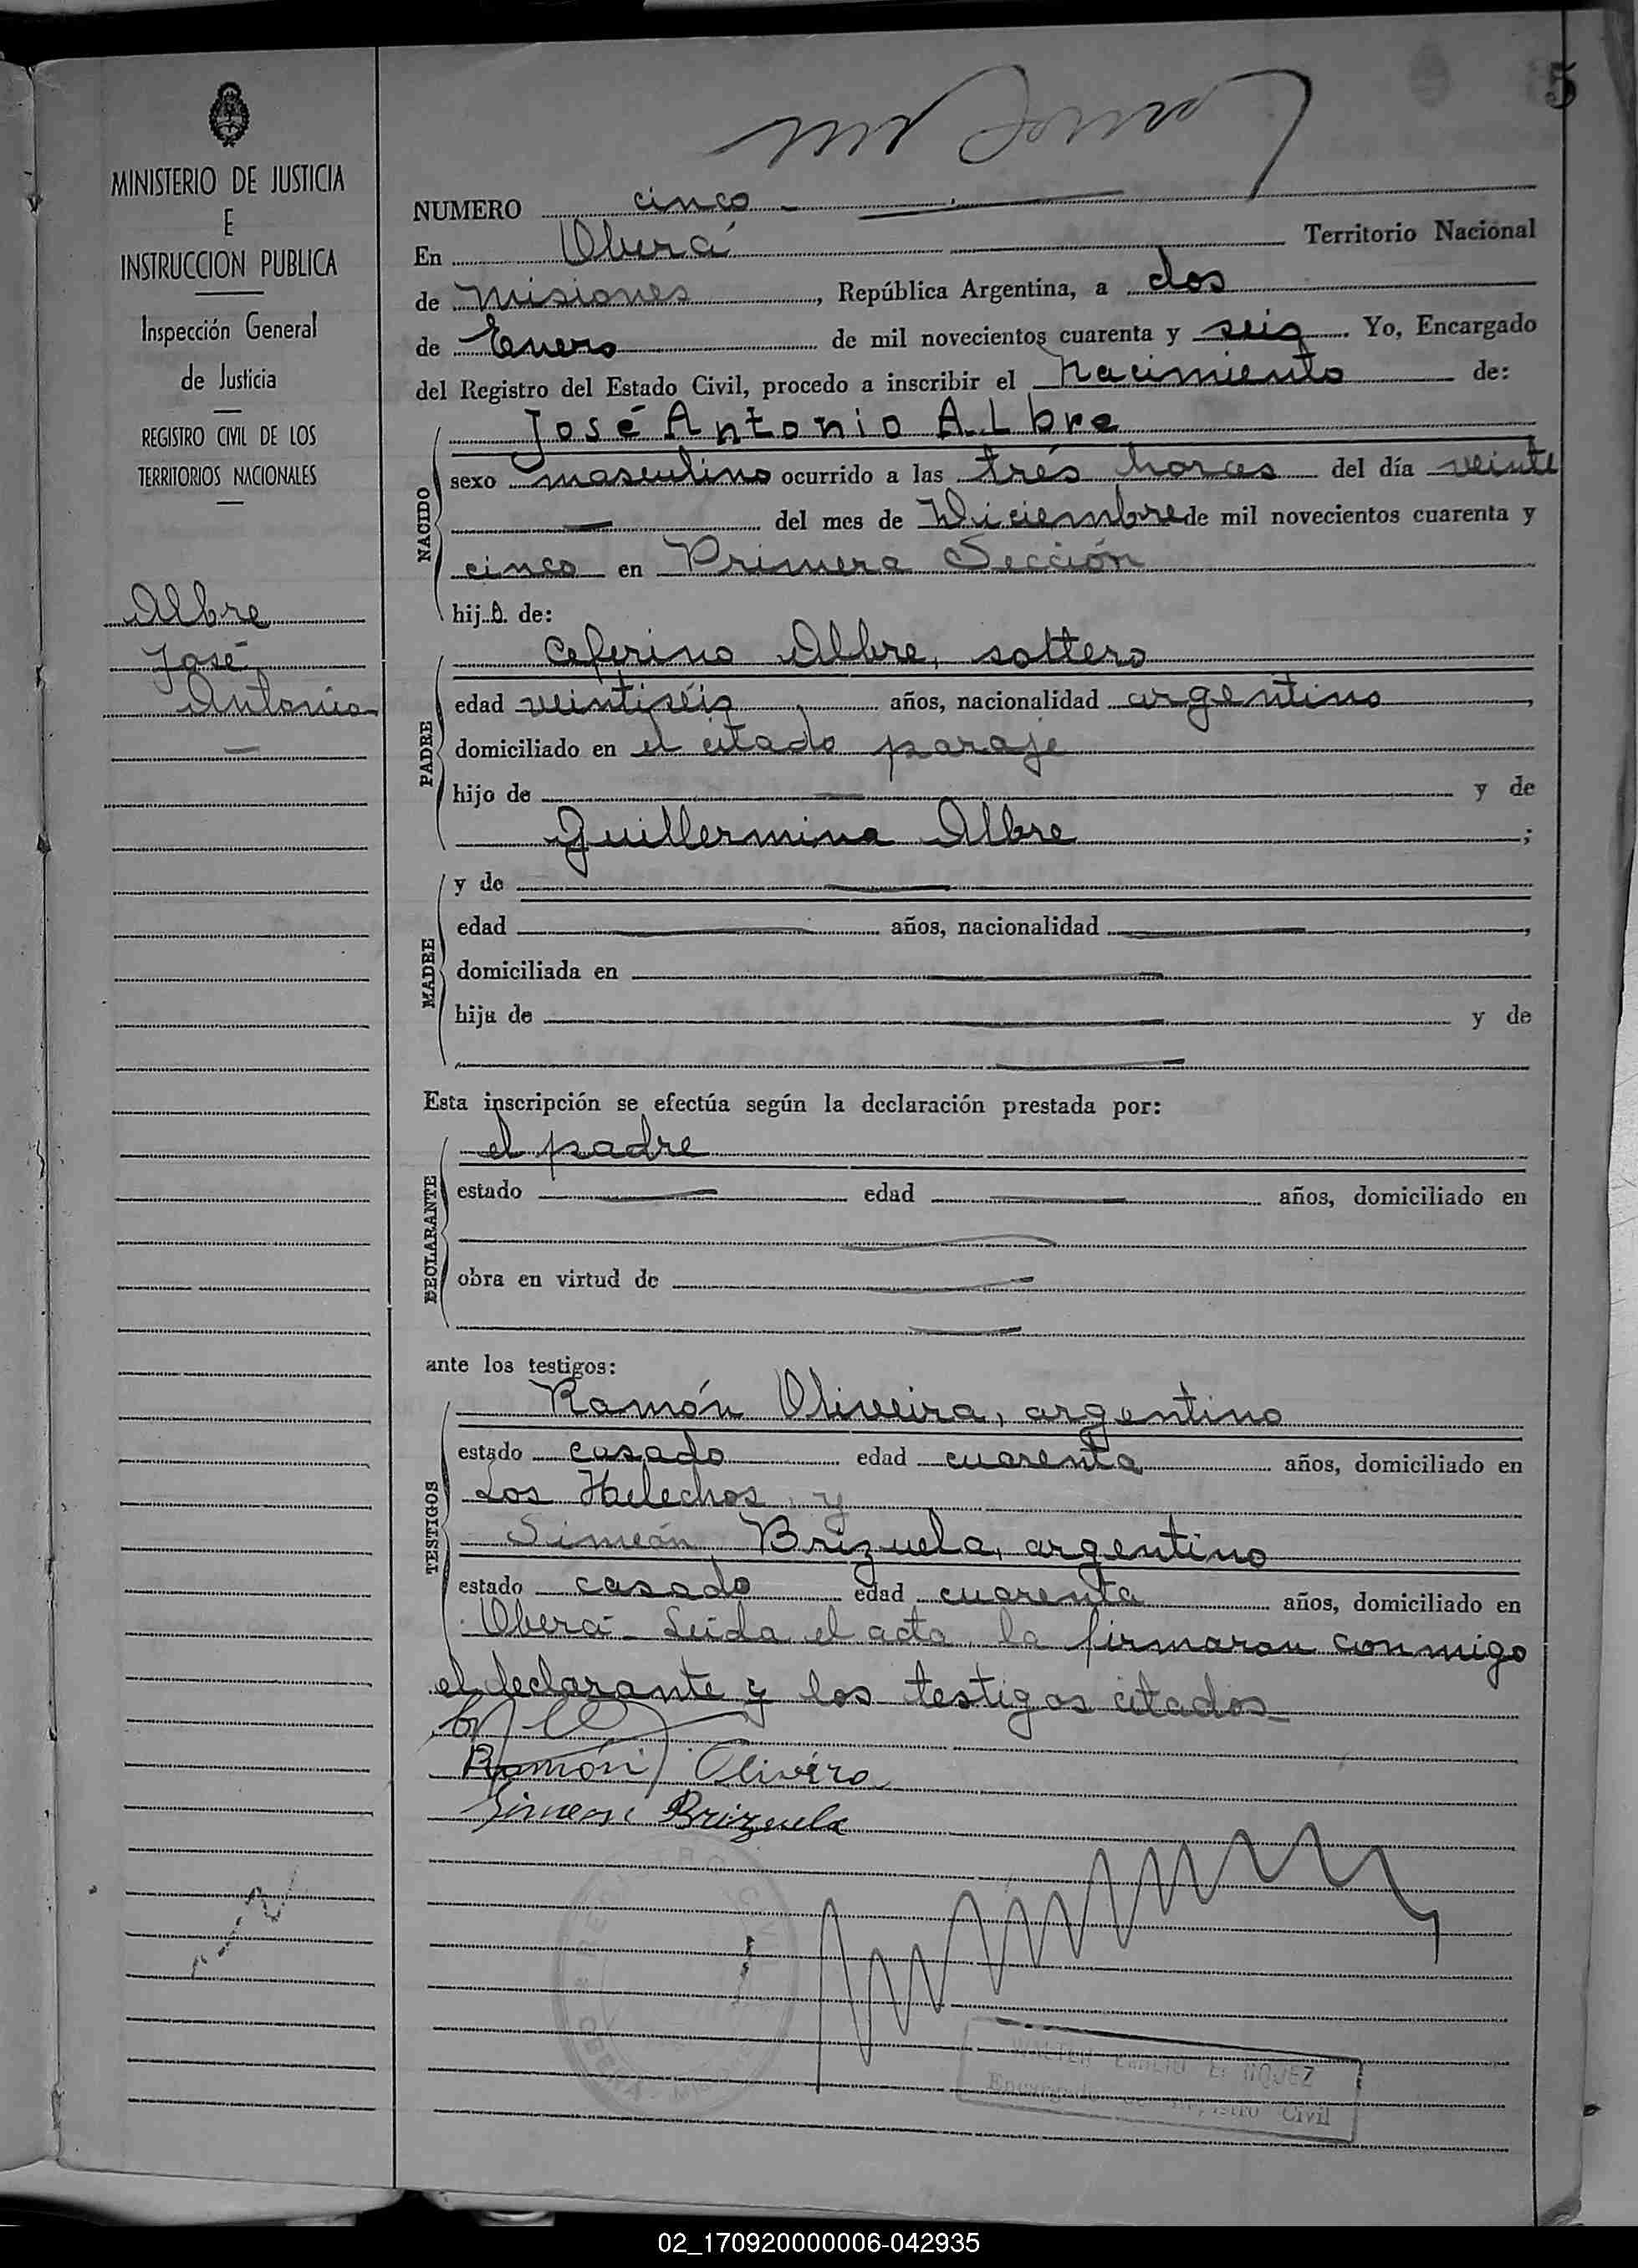 5
MINISTERIO DE JUSTICIA
E
INSTRUCCION PUBLICA
Inspección General
de Justicia
REGISTRO CIVIL DE LOS
TERRITORIOS NACIONALES
Albre
José
Antonio
NUMERO cinco
En Oberá Territorio Nacional
de Misiones, República Argentina, a dos
de Enero de mil novecientos cuarenta y seis. Yo, Encargado
del Registro del Estado Civil, procedo a inscribir el nacimiento de:
José Antonio ALbre
NACIDO
sexo masculino ocurrido a las tres horas del día veinte
del mes de Diciembre de mil novecientos cuarenta y
cinco en Primera Sección
hijo de:
PADRE
Ceferino Albre, soltero
edad veintiséis años, nacionalidad argentino,
domiciliado en el citado paraje
hijo de y de
Guillermina Albre;
MADRE
y de
edad años, nacionalidad,
domiciliada en
hija de y de
Esta inscripción se efectúa según la declaración prestada por:
DECLARANTE
el padre
estado edad años, domiciliado en
obra en virtud de
ante los testigos:
TESTIGOS
Ramón Oliveira, argentino
estado casado edad cuarenta años, domiciliado en
Los Helechos, y
Simeón Brizuela, argentino
estado casado edad cuarenta años, domiciliado en
Oberá - Leida el acta, la firmaron conmigo
el declarante y los testigos citados
Ramón Olivera
Simeon Brizuela
REGISTRO CIVIL
OBERÁ - MISIONES
WALTER EMILIO
Encargado del Registro Civil
02_170920000006-042935